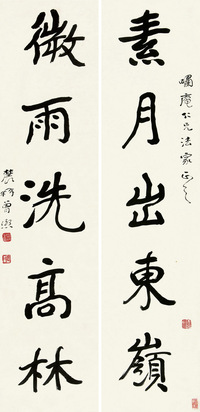 素月出東嶺
嘯庵仁兄法家正之
微雨洗高林
農髯曾熙